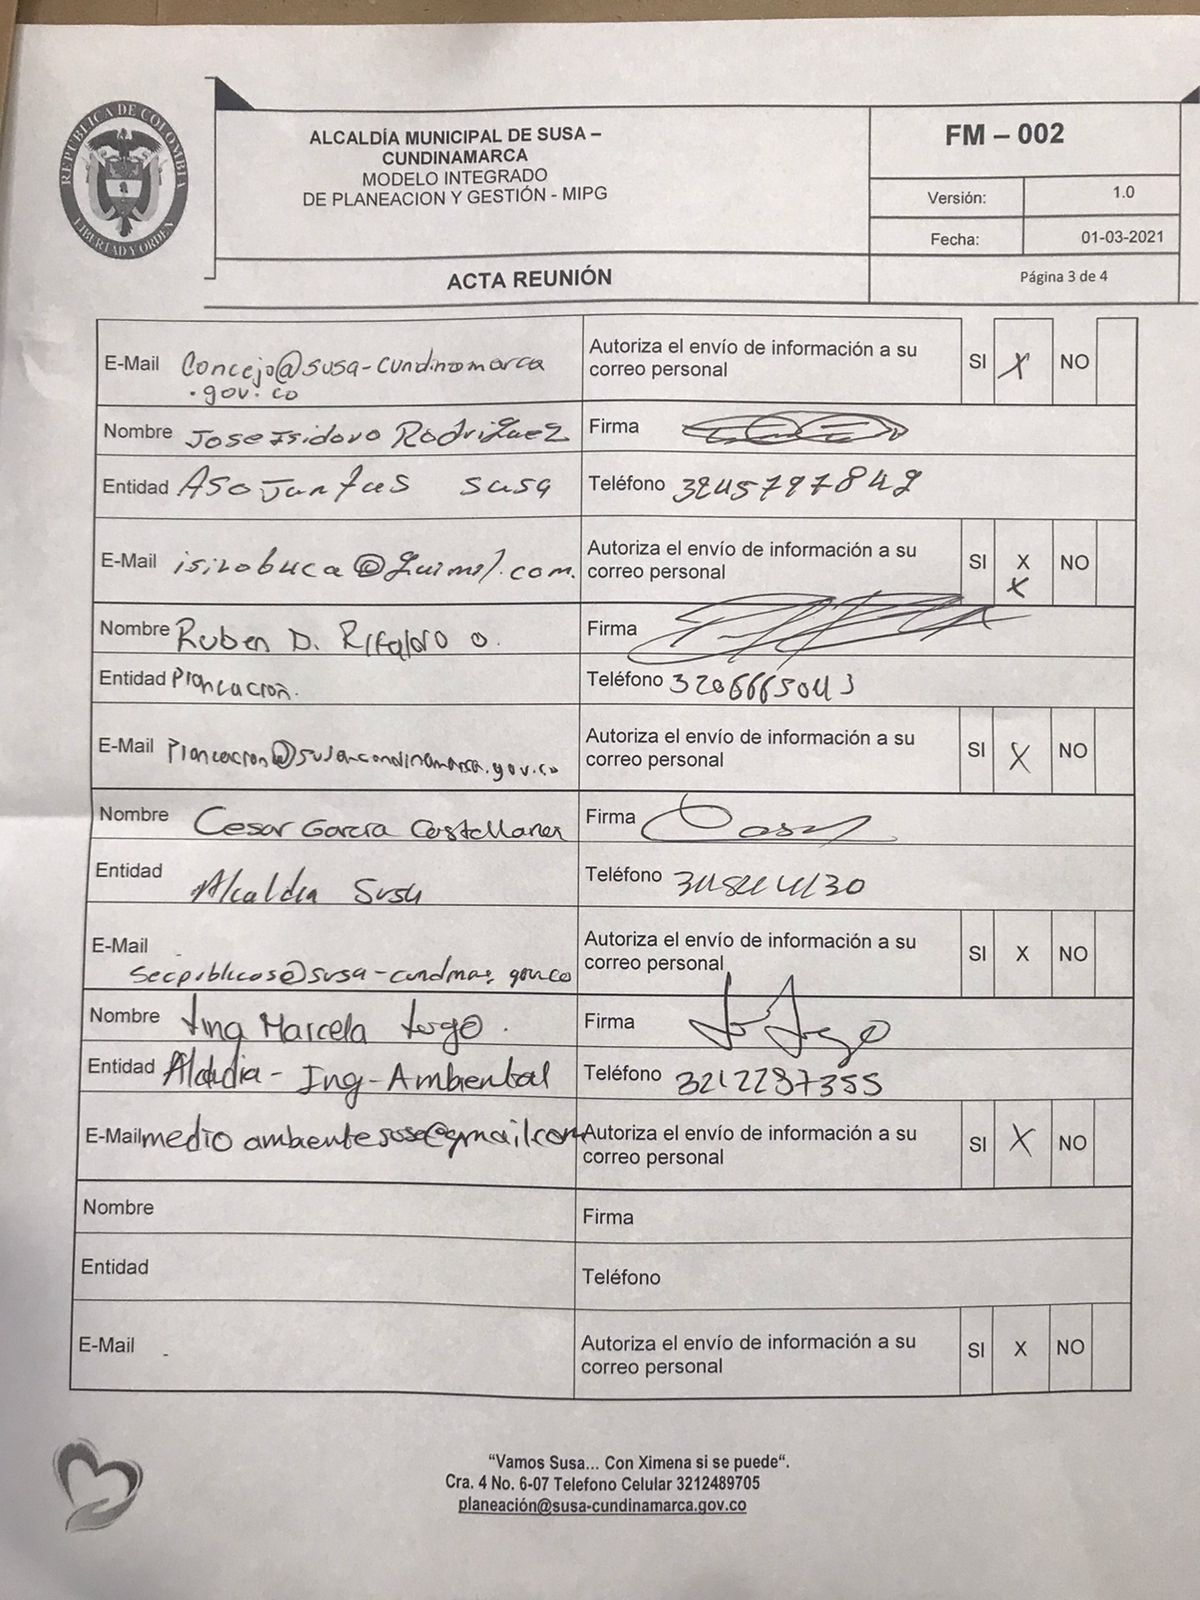 REPUBLICA DE COLOMBIA
LIBERTAD Y ORDEN
ALCALDÍA MUNICIPAL DE SUSA –
CUNDINAMARCA
MODELO INTEGRADO
DE PLANEACION Y GESTIÓN - MIPG
FM – 002
Versión: 1.0
Fecha: 01-03-2021
ACTA REUNIÓN
Página 3 de 4
E-Mail Concejo@susa-cundinamarca
.gov.co
Autoriza el envío de información a su
correo personal
SI X NO
Nombre Jose Isidoro Rodriguez
Firma
Entidad Aso Juntas susa
Teléfono 3245797849
E-Mail
Autoriza el envío de información a su
correo personal
SI X NO
X
Nombre Ruben D. o.
Firma
Entidad Planeación.
Teléfono 3206665043
E-Mail
Autoriza el envío de información a su
correo personal
SI X NO
Nombre Cesar Garcia Castellanos
Firma
Entidad Alcaldia Susa
Teléfono
E-Mail
Autoriza el envío de información a su
correo personal
SI X NO
Nombre Ing Marcela
Firma
Entidad Alcaldia - Ing - Ambiental
Teléfono 3212287355
E-Mail medio ambientesusa@gmail.com
Autoriza el envío de información a su
correo personal
SI X NO
Nombre
Firma
Entidad
Teléfono
E-Mail
Autoriza el envío de información a su
correo personal
SI X NO
“Vamos Susa... Con Ximena si se puede“.
Cra. 4 No. 6-07 Telefono Celular 3212489705
planeación@susa-cundinamarca.gov.co